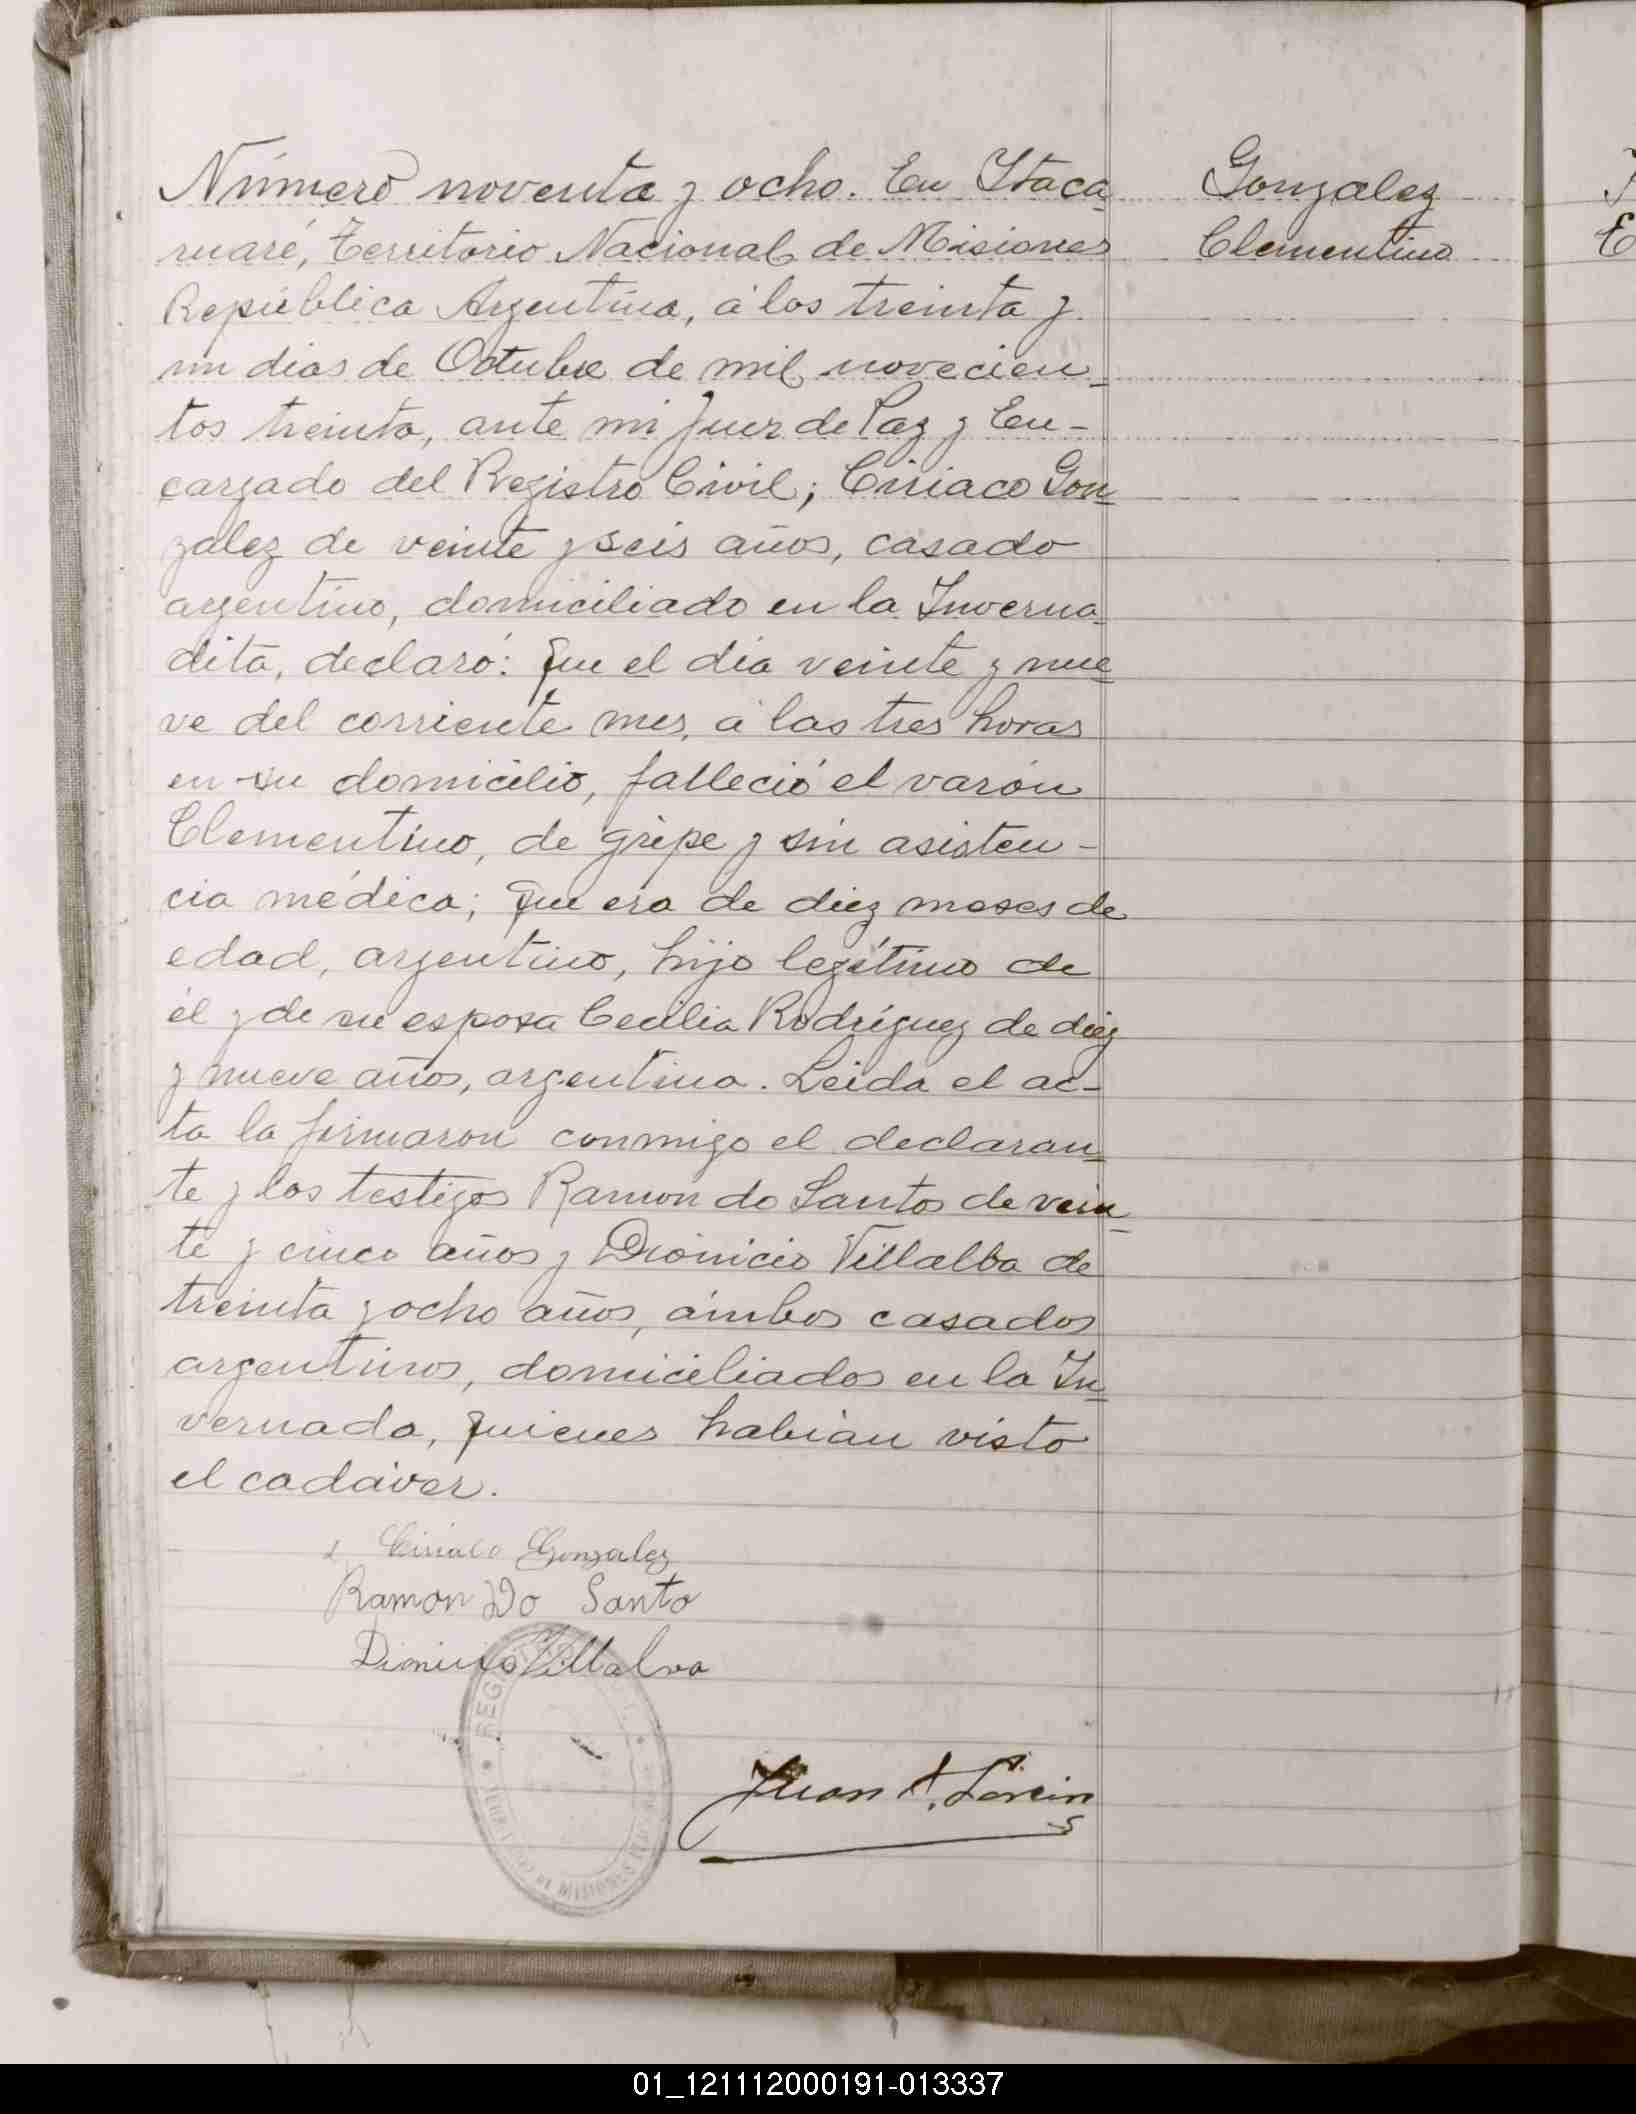 Número noventa y ocho. En Itaca-
ruaré, Territorio Nacional de Misiones
República Argentina, á los treinta y
un dias de Octubre de mil novecien-
tos treinta, ante mi Juez de Paz y En-
cargado del Registro Civil; Ciriaco Gon-
zalez de veinte y seis años, casado
argentino, domiciliado en la Inverna-
dita, declaró: Que el día veinte y nue-
ve del corriente mes, á las tres horas
en su domicilio, falleció el varón
Clementino, de gripe y sin asisten-
cia médica; Que era de diez meses de
edad, argentino, hijo legítimo de
él y de su esposa Cecilia Rodríguez de diez
y nueve años, argentina. Leida el ac-
ta la firmaron conmigo el declaran-
te y los testigos Ramon do Santos de vein-
te y cinco años y Dionicio Villalba de
treinta y ocho años, ámbos casados
argentinos, domiciliados en la In-
vernada, quienes habian visto
el cadáver.
Ciriaco Gonzalez
Ramon Do Santo
Dionicio Villalva
Juan A.
Gonzalez
Clementino
01_121112000191-013337